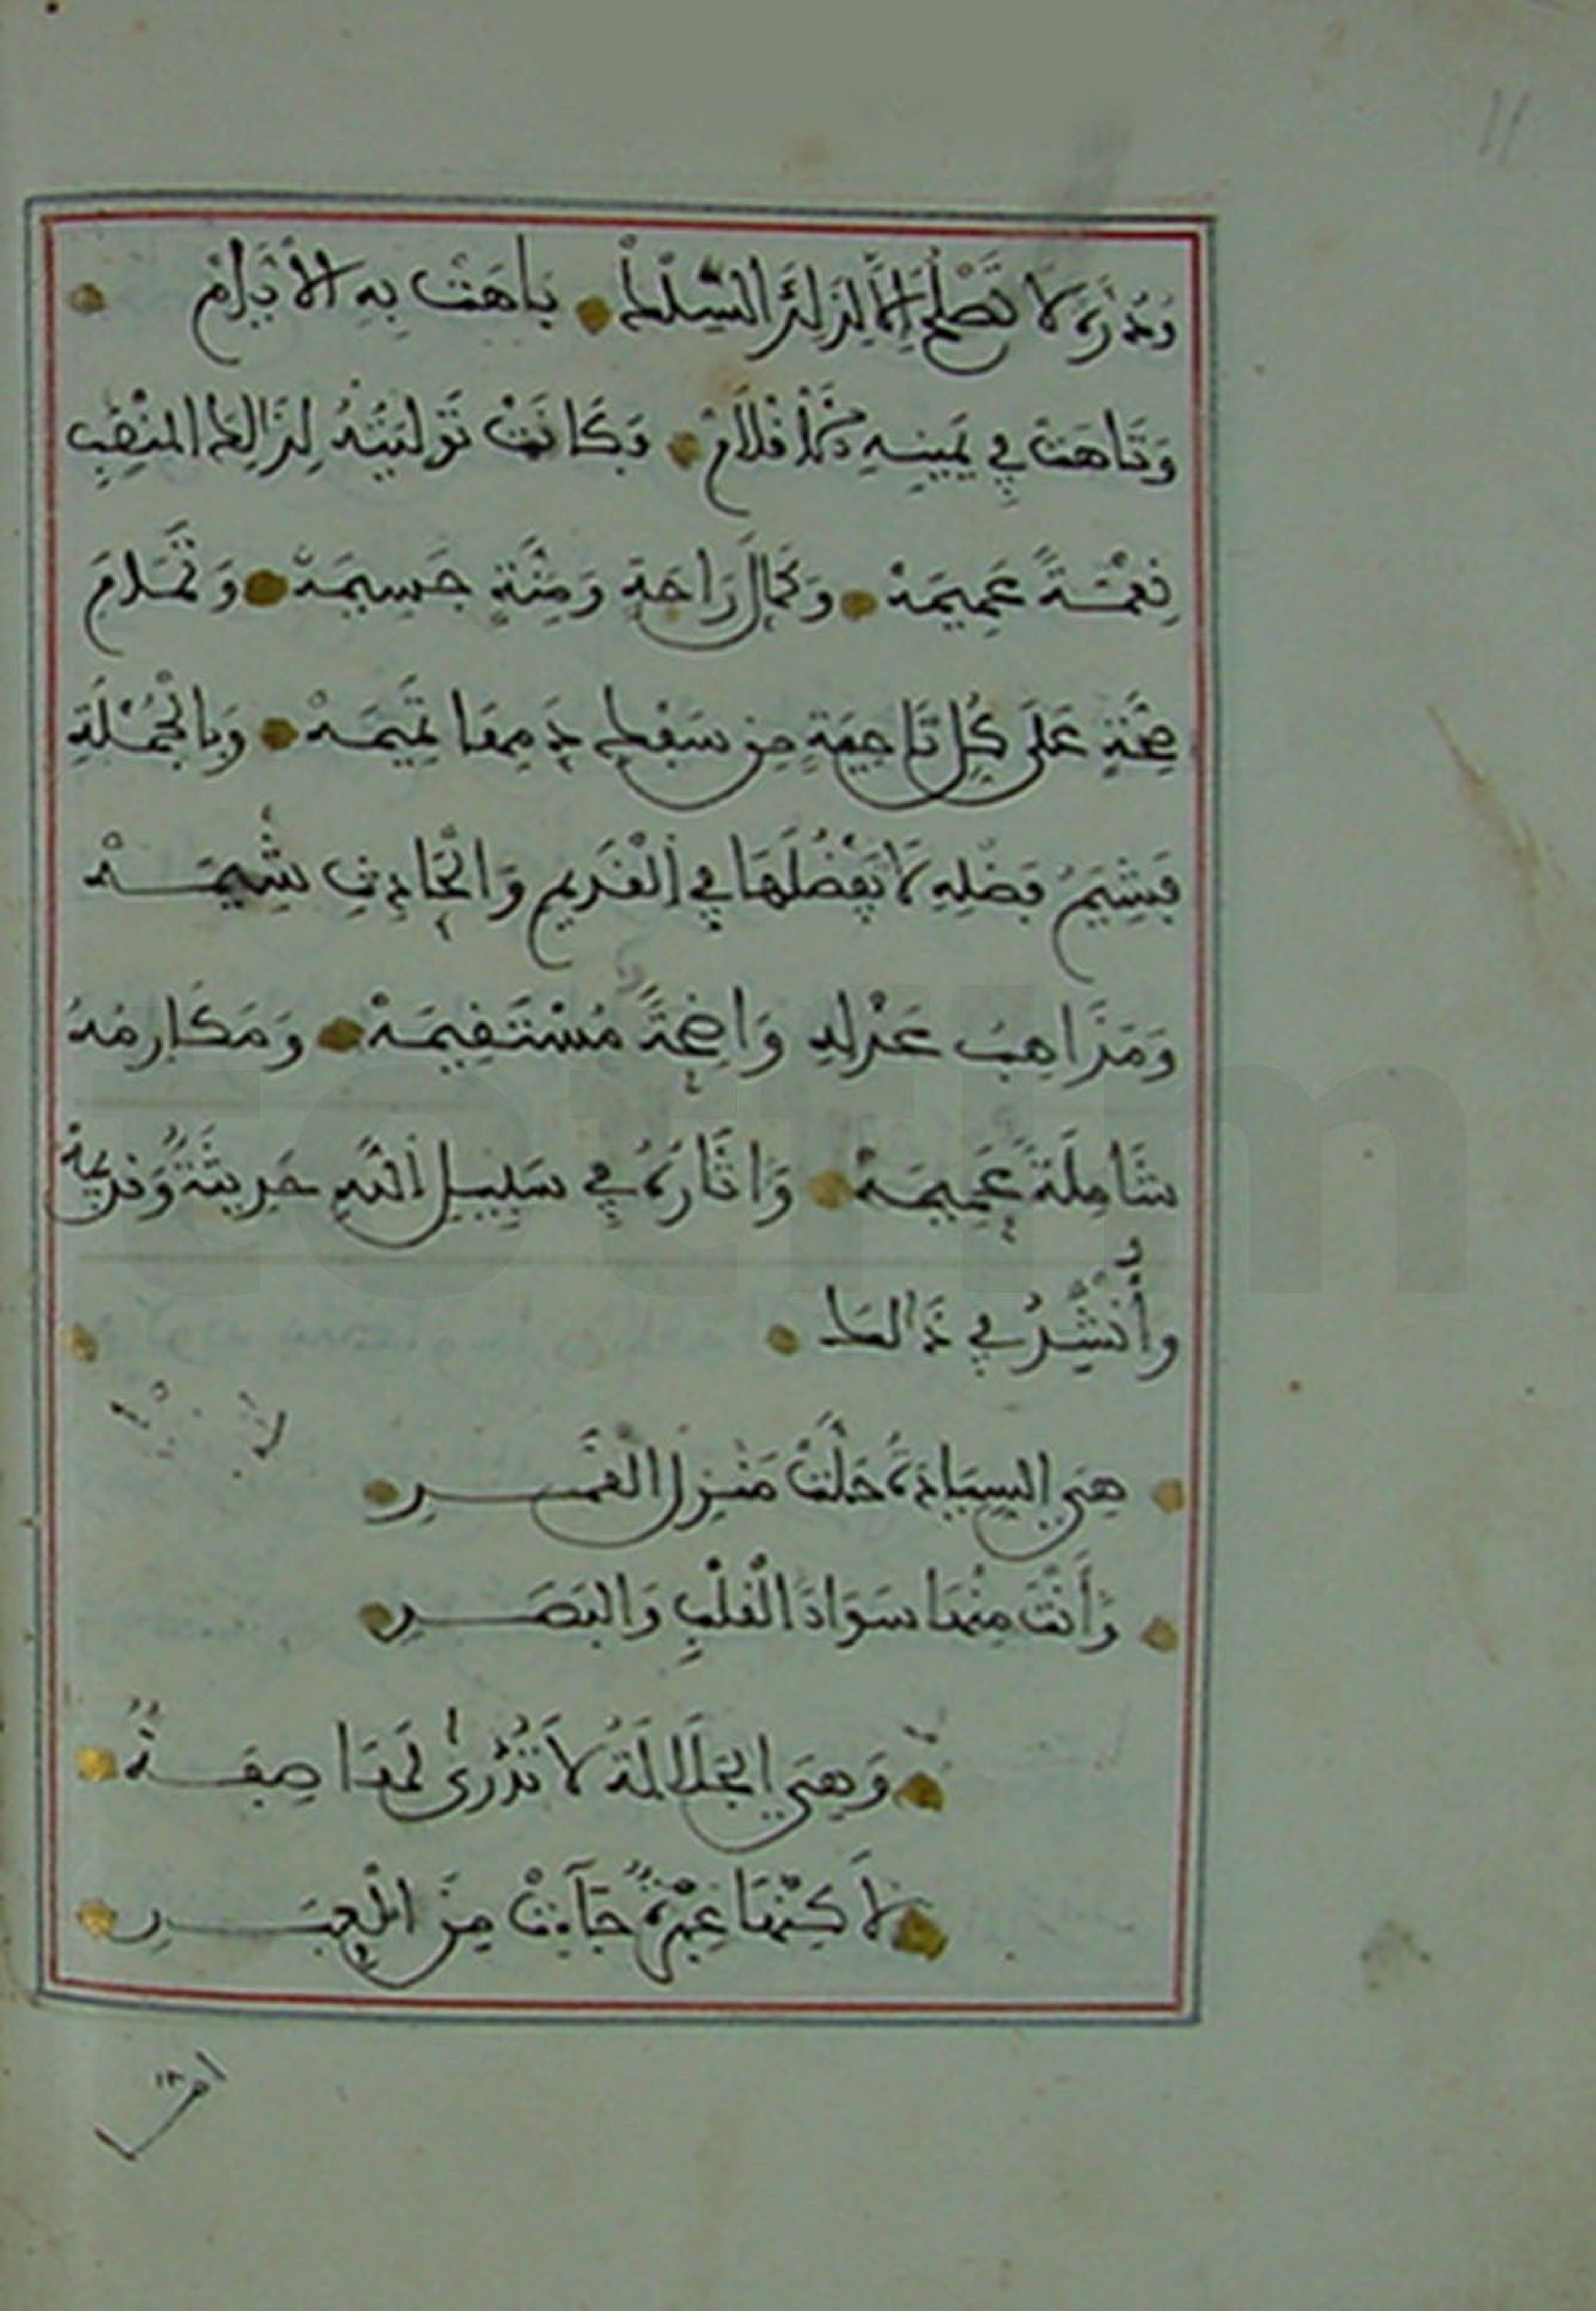 11
وَدُرَّةٌ لَا تَصْلُحُ إِلَّا لِذَلِكَ السِّلْكْ بَاهَتْ بِهِ الْأَيَّامْ
وَتَاهَتْ فِي يَمِينِهِ الْأَقْلَامْ وَكَانَتْ تَوْلِيَتُهُ لِذَالِكَ المَنْصِبِ
نِعْمَةً عَمِيمَهْ وَكَمَالَ رَاحَةٍ وَمِنَّةٍ جَسِيمَهْ وَتَمَامَ
صِحَّةٍ عَلَى كُلِّ نَاحِيَةٍ مِن سَفْكِ دَمِهَا تَمِيمَهْ وَبِالْجُمْلَةِ
فَشِيَمُ فَضْلِهِ لَا يَفْضُلُهَا فِي الْقَدِيمِ وَالْحَادِثِ شِيمَهْ
وَمَذَاهِبُ عَدْلِهِ وَاضِحَةٌ مُسْتَقِيمَهْ وَمَكَارِمُهُ
شَامِلَةٌ عَمِيمَهْ وَاثَارُهُ فِي سَبِيلِ اللَّهِ حَدِيثَةٌ وَقَدِيمَهْ
وأُنْشِدُ فِي ذَالك
هِيَ السِّيَادَةُ حَلَّتْ مَنْزِلَ الْقَمَرِ
وَأَنْتَ مِنْهَا سَوَادَ الْقَلْبِ وَالبَصَرِ
وَهِيَ الجَلَالَةُ لَا تُدْرَى لَهَا صِفَةٌ
لَاكِنَّهَا عِبْرَةٌ جَاءَتْ مِنَ الْعِبَرِ